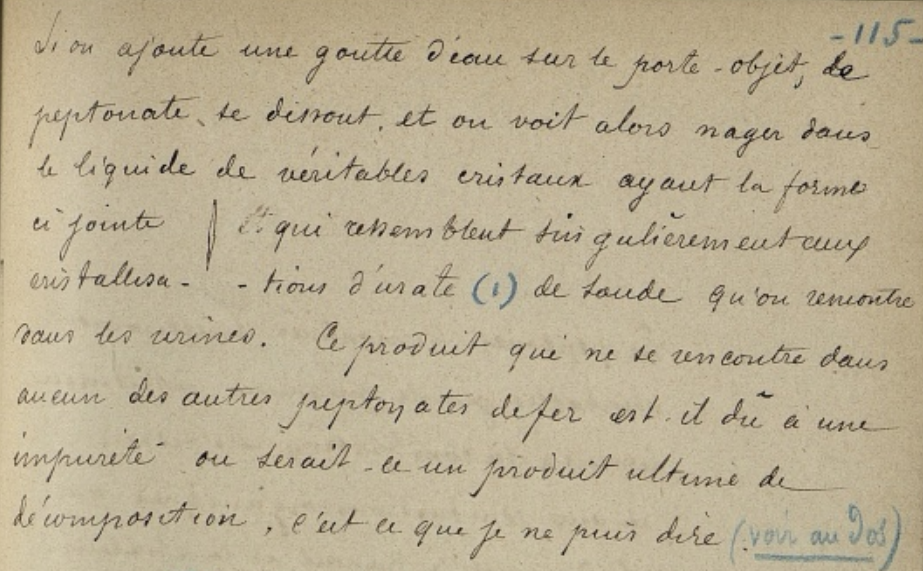 -115-
Si on ajoute une goutte d'eau sur le porte-objet, le
peptonate se dissout, et on voit alors nager dans
le liquide de véritables cristaux ayant la forme
ci jointe et qui ressemblent singulièrement aux
cristallisa- -tions d'urate (1) de soude qu'on rencontre
dans les urines. Ce produit qui ne se rencontre dans
aucun des autres peptonates de fer est-il dû à une
impureté ou serait-ce un produit ultime de
décomposition, c'est ce que je ne puis dire (voir au dos)